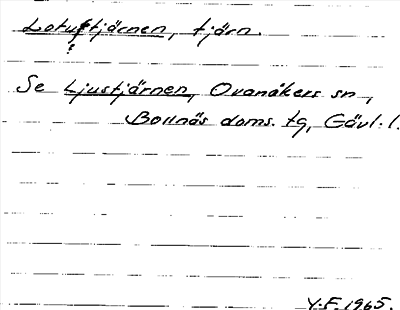 Lotustjärnen, tjärn.
?
Se Ljustjärnen, Ovanåkers sn,
Bollnäs doms. tg, Gävl. l.
Y.F. 1965.